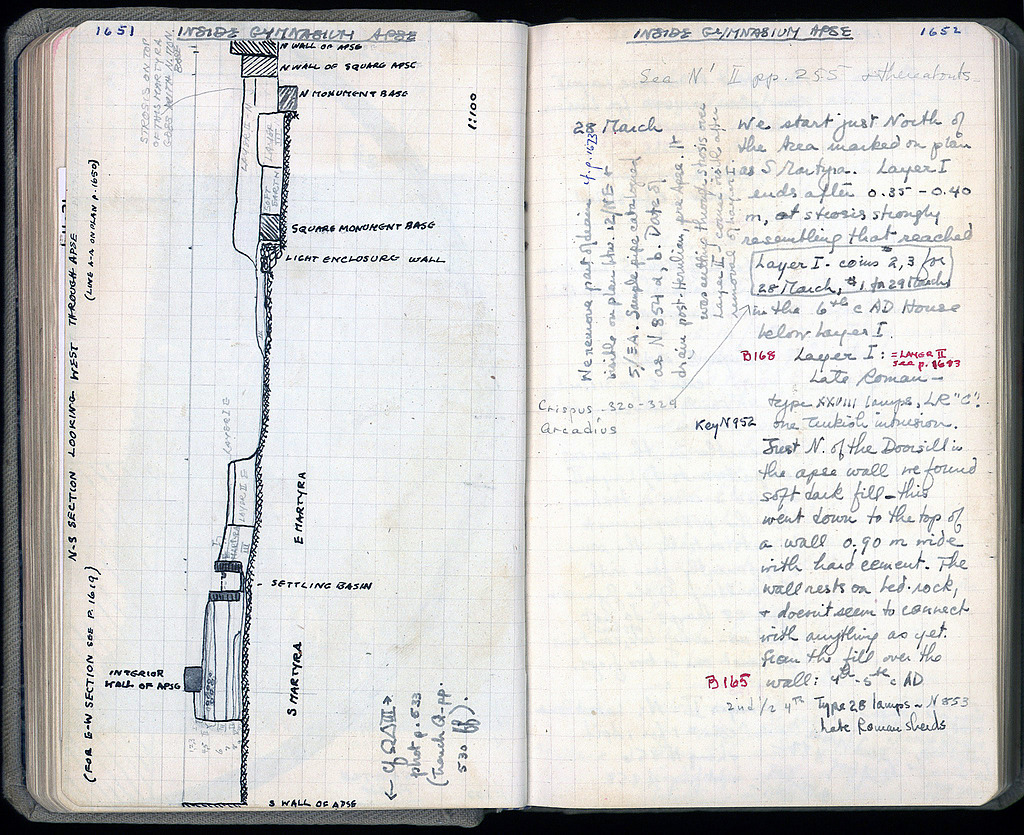 1651
INSIDE GYMNASIUM APSE
STROSIS ON TOP
OF THIS MARTYRA
GOES WITH N. MON.
BASE
N WALL OF APSE
N WALL OF SQUARE APSE
N MONUMENT BASE
1:100
LAYER II
LAYER III
SOFT EARTH
SQUARE MONUMENT BASE
LIGHT ENCLOSURE WALL
N-S SECTION LOOKING WEST THROUGH APSE
(LINE A-A ON PLAN P. 1650)
(FOR E-W SECTION SEE P. 1619)
LAYER I
LAYER II
III
E MARTYRA
SETTLING BASIN
INTERIOR
WALL OF APSE
S MARTYRA
S WALL OF APSE
phot p. 533
(Trench Q - pp.
530 ff)
INSIDE GYMNASIUM APSE
1652
See N' II pp. 255 + thereabouts
28 March
We remove part of drain
visible on plan
5/EA. Sample pipe catalogued
as N 854 a, b. Date of
drain post-Herulian, pre Apse. It
was cutting through strosis over
Layer II, came visible after
removal of Layer I.
We start just North of
the Area marked on plan
as S Martyra. Layer I
ends after 0.35 - 0.40
m, at strosis strongly
resembling that reached
Layer I - coins 2, 3 for
28 March, #1 for 29 March
in the 6th c AD House
below Layer I.
B168 Layer I: = LAYER II
see p. 1683
Late Roman -
type XXVIII lamps, LR "C".
Crispus - 320-324
Arcadius
Key N952 one Turkish intrusion.
Just N. of the Doorsill in
the apse wall we found
soft dark fill - this
went down to the top of
a wall 0,90 m wide
with hard cement. The
wall rests on bed-rock,
+ doesn't seem to connect
with anything as yet.
From the fill over the
B165 wall: 4th - 5th c AD
2nd 1/2 4th Type 28 lamps - N 853
Late Roman sherds